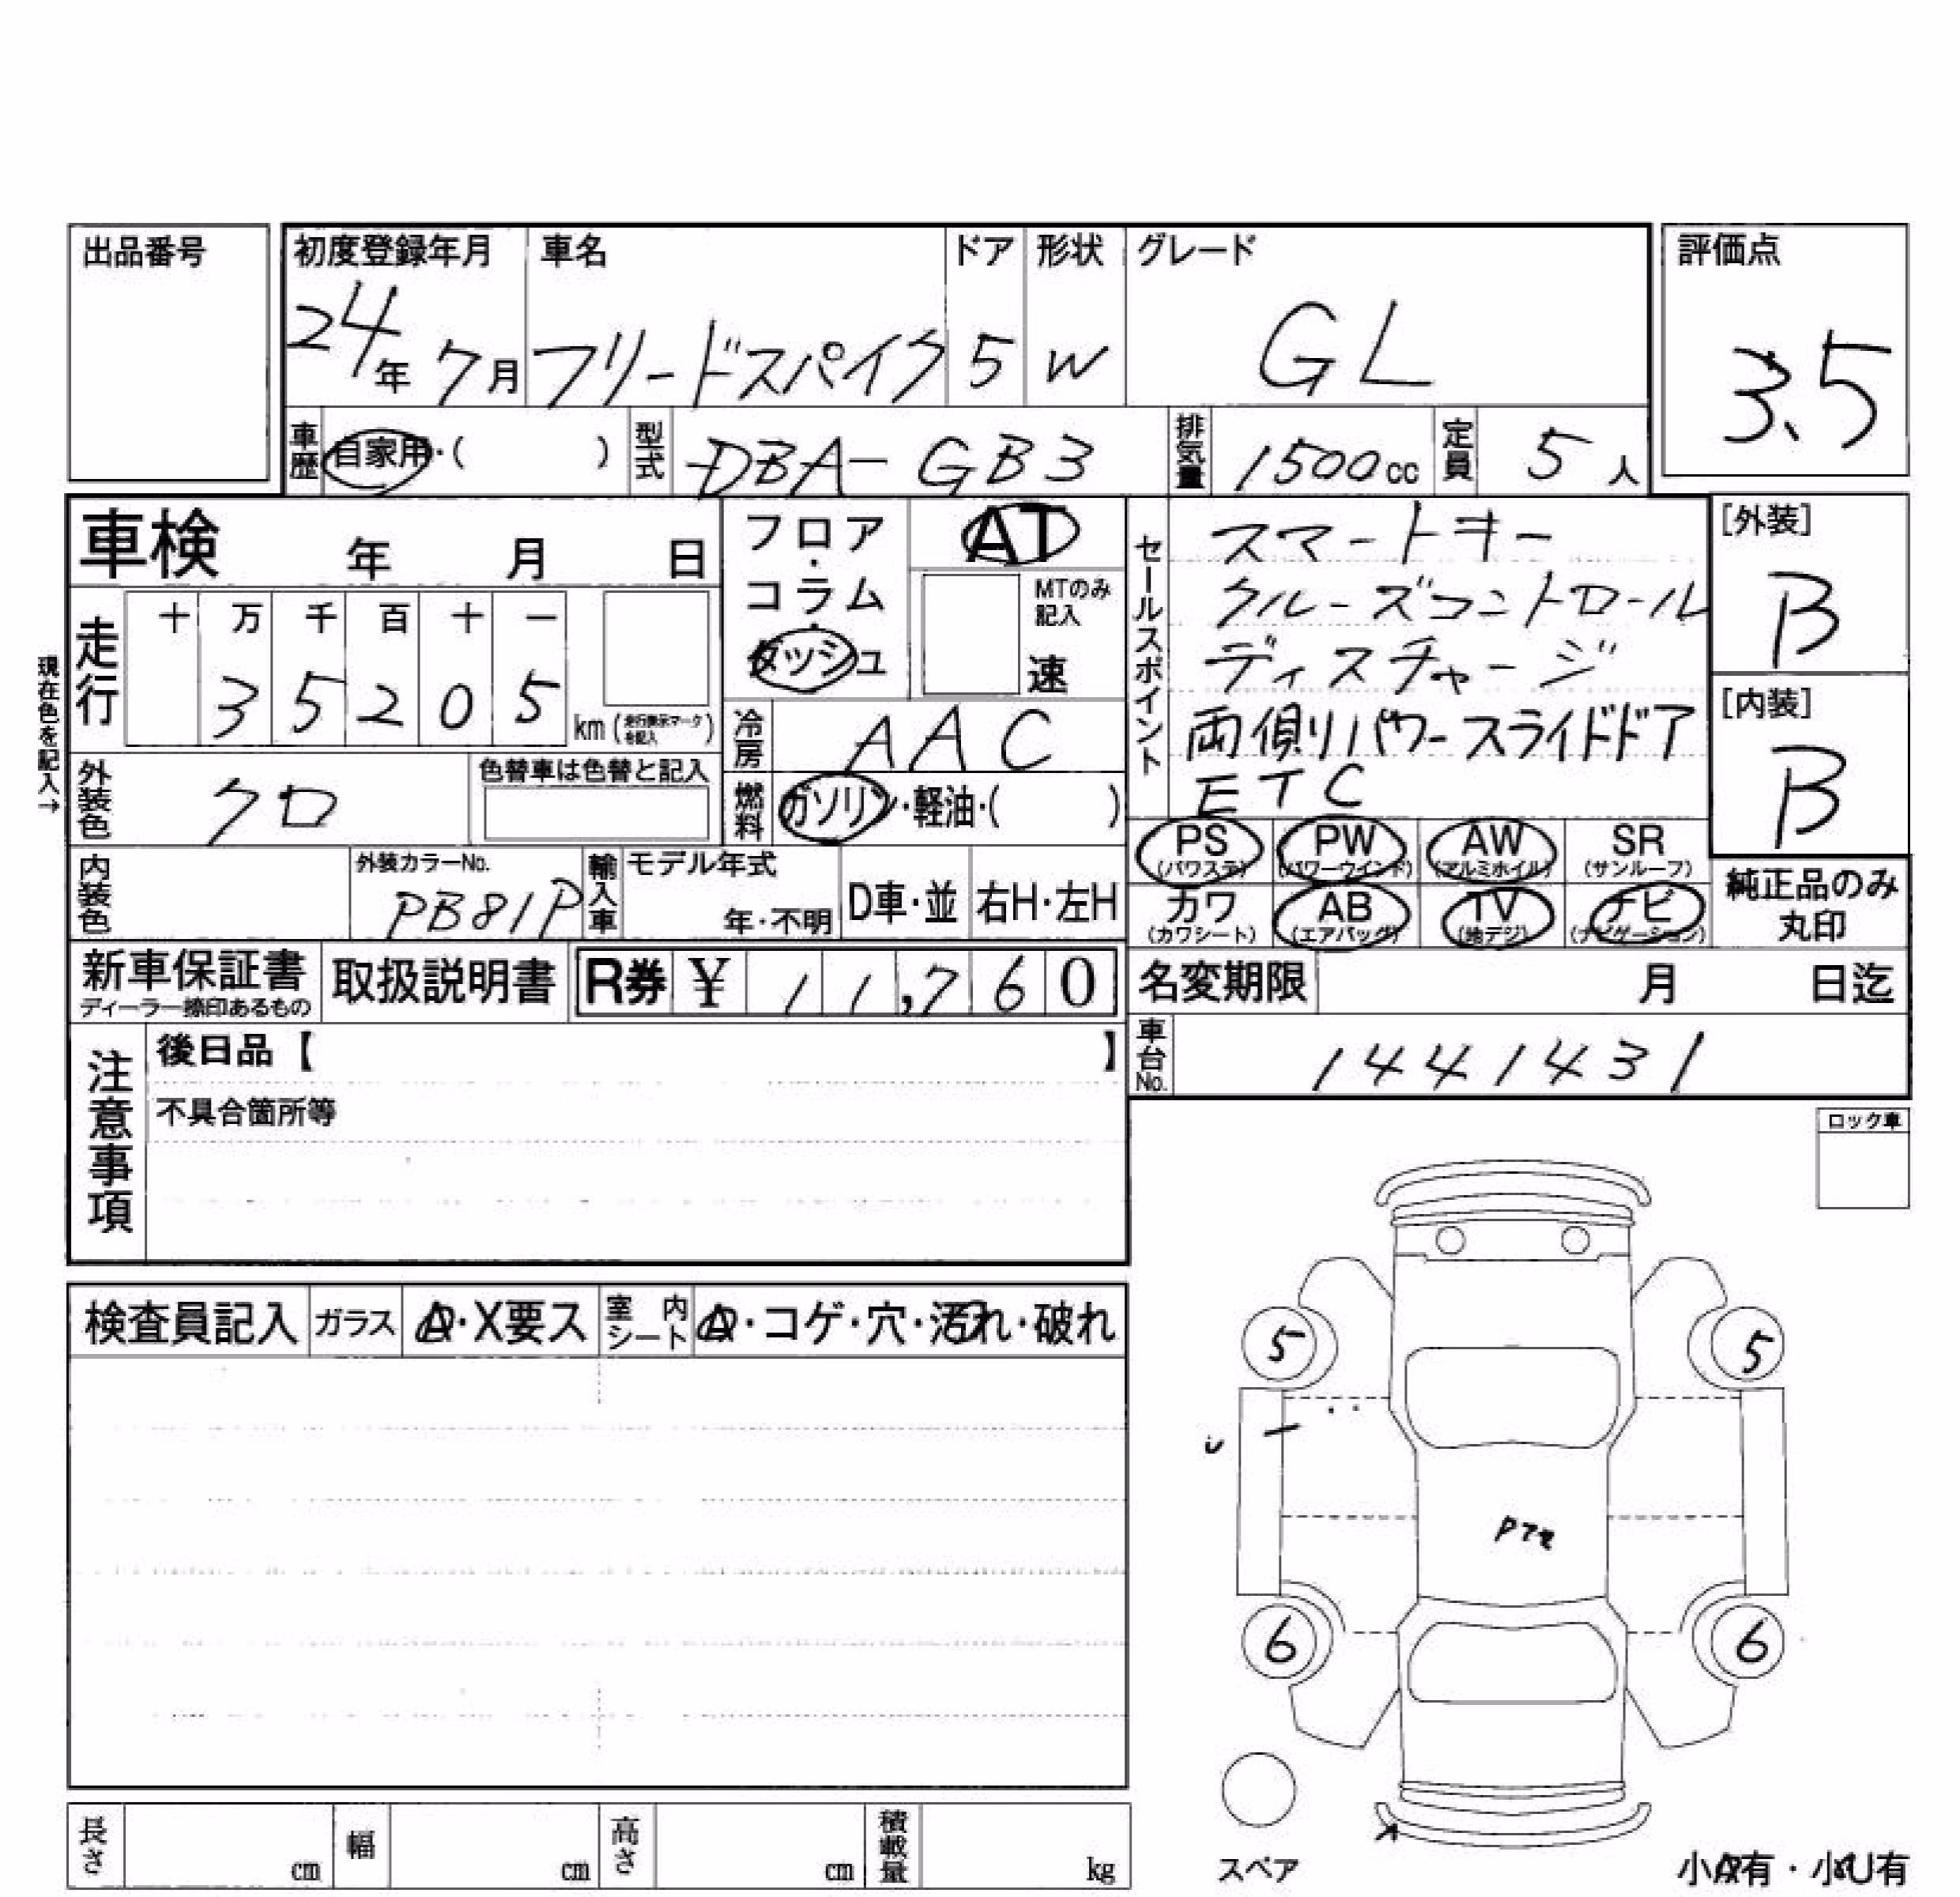 出品番号
初度登録年月 車名 ドア 形状 グレード 評価点
24年 7月 フリードスパイク 5 W GL 3.5
車歴 自家用・( ) 型式 DBA-GB3 排気量 1500cc 定員 5人
車検 年 月 日
フロア・コラム・ダッシュ
AT
MTのみ記入
速
セールスポイント
スマートキー
クルーズコントロール
ディスチャージ
両側リパワースライドドア
ETC
[外装]
B
[内装]
B
現在色を記入→
走行 十 万 千 百 十 一
3 5 2 0 5 km (走行表示マークを記入)
冷房 AAC
外装色 クロ 色替車は色替と記入
燃料 ガソリン・軽油・( )
PS (パワステ) PW (パワーウインド) AW (アルミホイル) SR (サンルーフ)
カワ (カワシート) AB (エアバッグ) TV (地デジ) ナビ (ナビゲーション)
純正品のみ
丸印
内装色 外装カラーNo. PB81P 輸入車 モデル年式 年・不明 D車・並 右H・左H
新車保証書 ディーラー捺印あるもの 取扱説明書 R券 ¥ 11,760
名変期限 月 日迄
車台No. 1441431
注意事項
後日品【 】
不具合箇所等
ロック車
検査員記入 ガラス A・X要ス 室内シート A・コゲ・穴・汚れ・破れ
5 5
U
6 6
スペア
長さ cm 幅 cm 高さ cm 積載量 kg
小A有・小U有